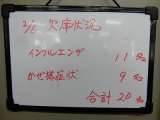 欠席状況
インフルエンザ 11名
かぜ様症状 9名
合計 20名